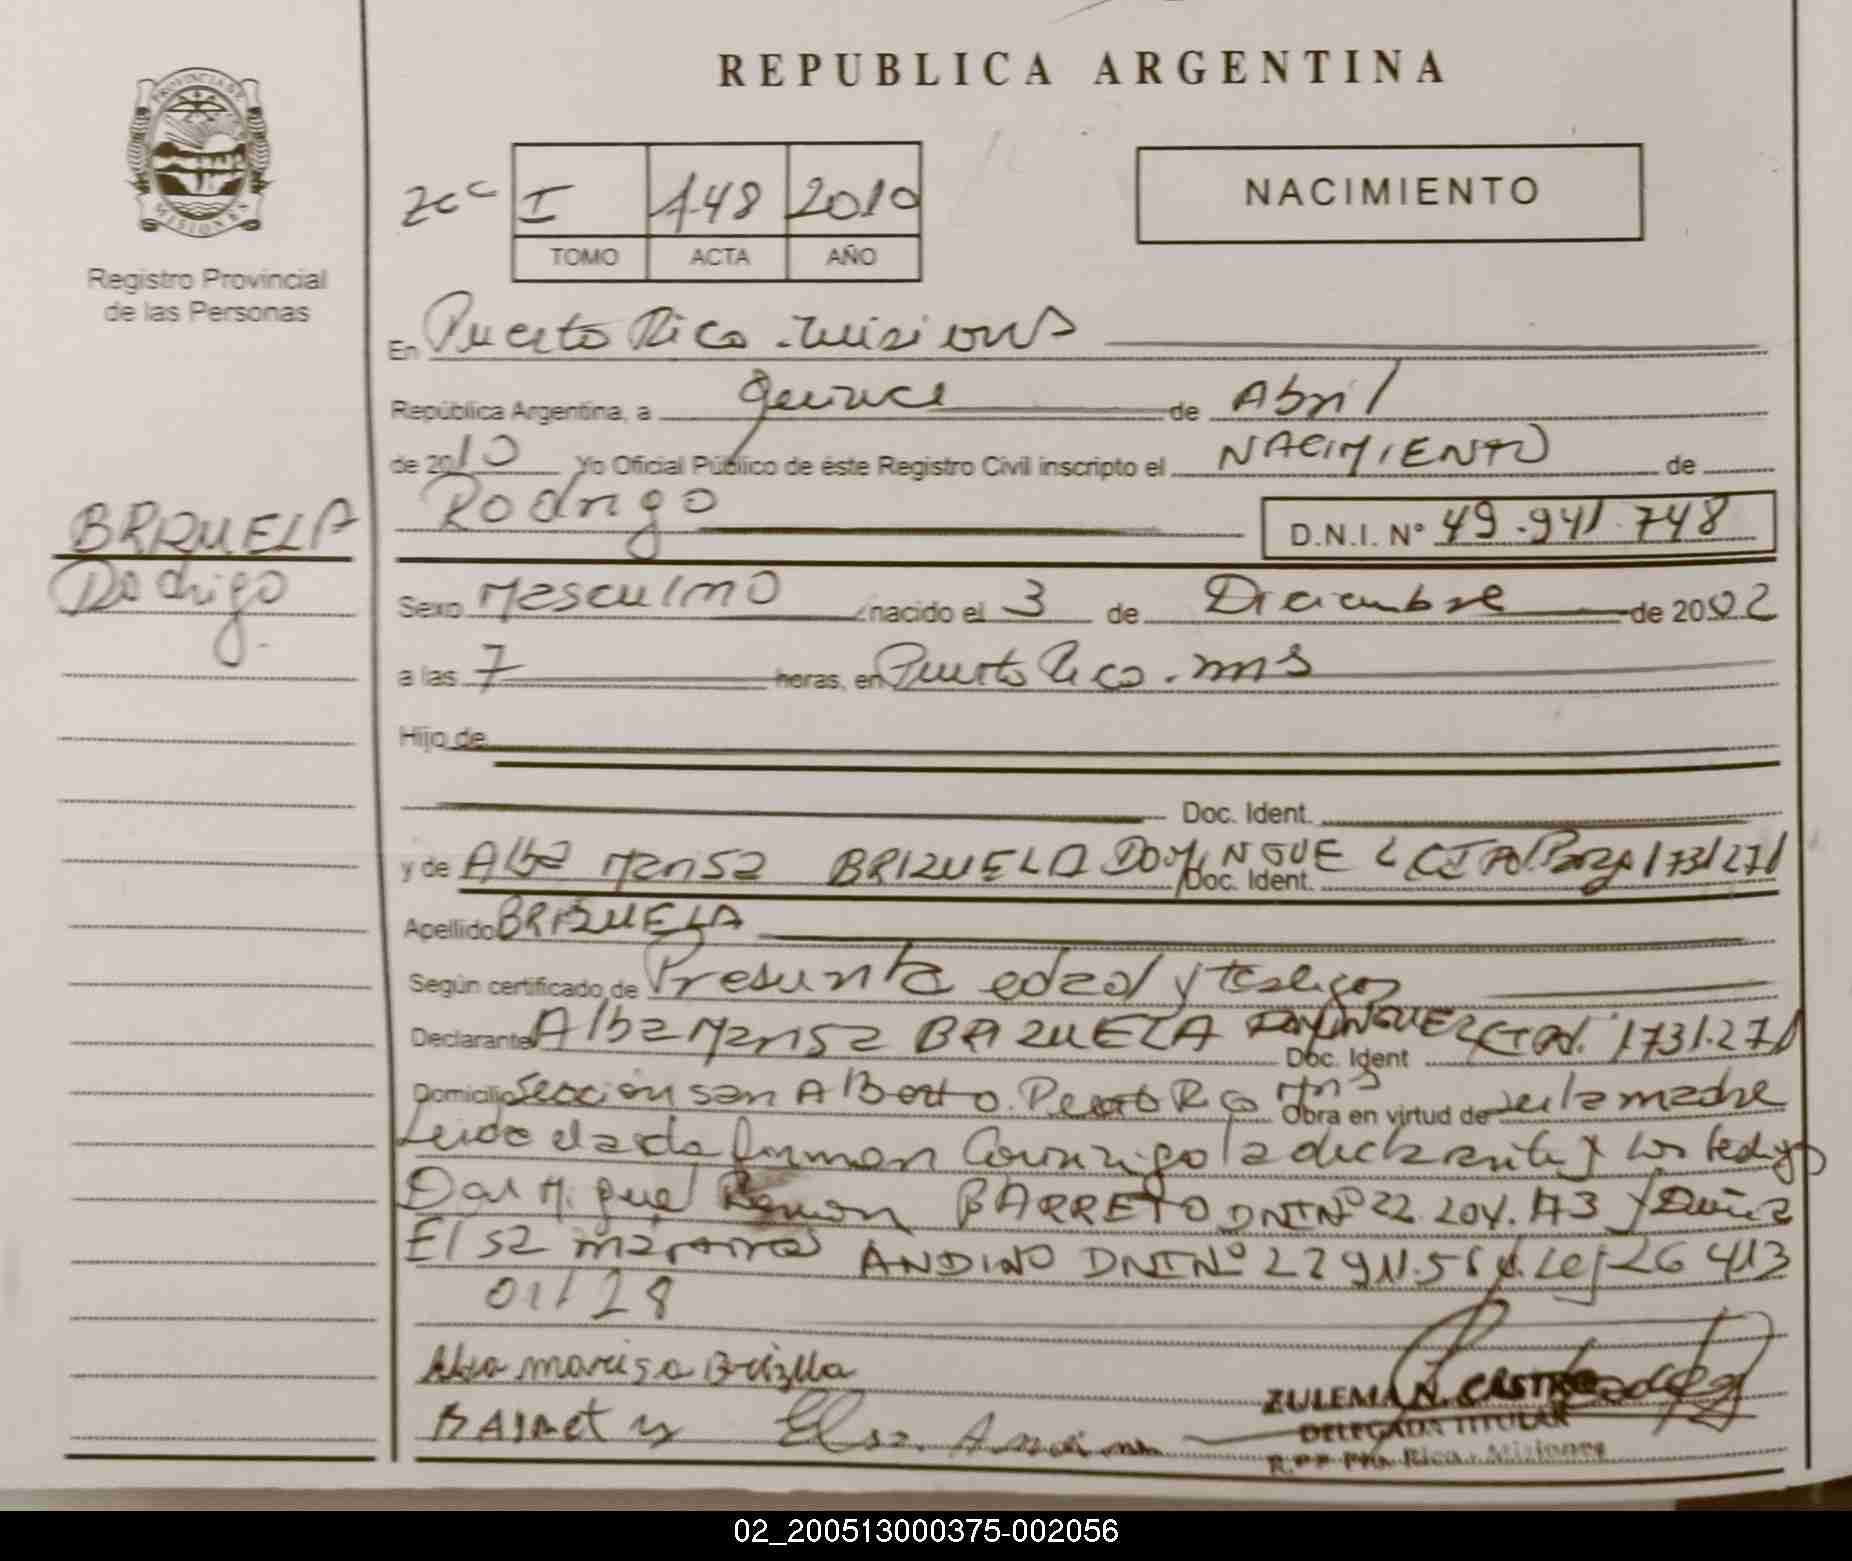 REPUBLICA ARGENTINA
PROVINCIA DE
MISIONES
Registro Provincial
de las Personas
I 148 2010
TOMO ACTA AÑO
NACIMIENTO
En Puerto Rico. Misiones
República Argentina, a quince de Abril
de 2010 Yo Oficial Público de éste Registro Civil inscripto el NACIMIENTO de
BRIZUELA
Rodrigo
Rodrigo D.N.I. Nº 49.941.748
Sexo Masculino nacido el 3 de Diciembre de 2002
a las 7 horas, en Puerto Rico. mns
Hijo de
Doc. Ident.
y de Alba Marisa BRIZUELA DOMINGUEZ Doc. Ident. 1731271
Apellido BRIZUELA
Según certificado de Presunta edad y testigos
Declarante Alba Marisa BRIZUELA DOMINGUEZ Doc. Ident 1731.271
Domicilio Sección san Alberto. Puerto Rico Mns Obra en virtud de ser la madre
Leido el acta firman conmigo la declarante y los testigos
Don Miguel Ramon BARRETO DNI Nº 22.204.173 y Doña
Elsa ANDINO DNI Nº Lej 26413
01/28
Alba marisa Brizuela
Elsa. Andino
ZULEMA N. CASTRO
DELEGADA TITULAR
R.P.P. Pto. Rico - Misiones
02_200513000375-002056